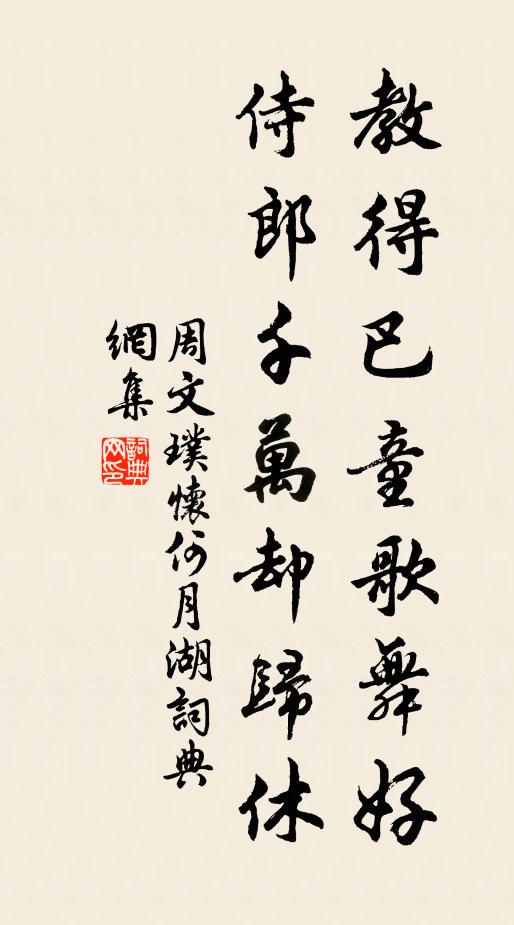 教得巴童歌舞好
侍郎千萬却歸休
周文璞懷何月湖詞典
網集
詞典網印